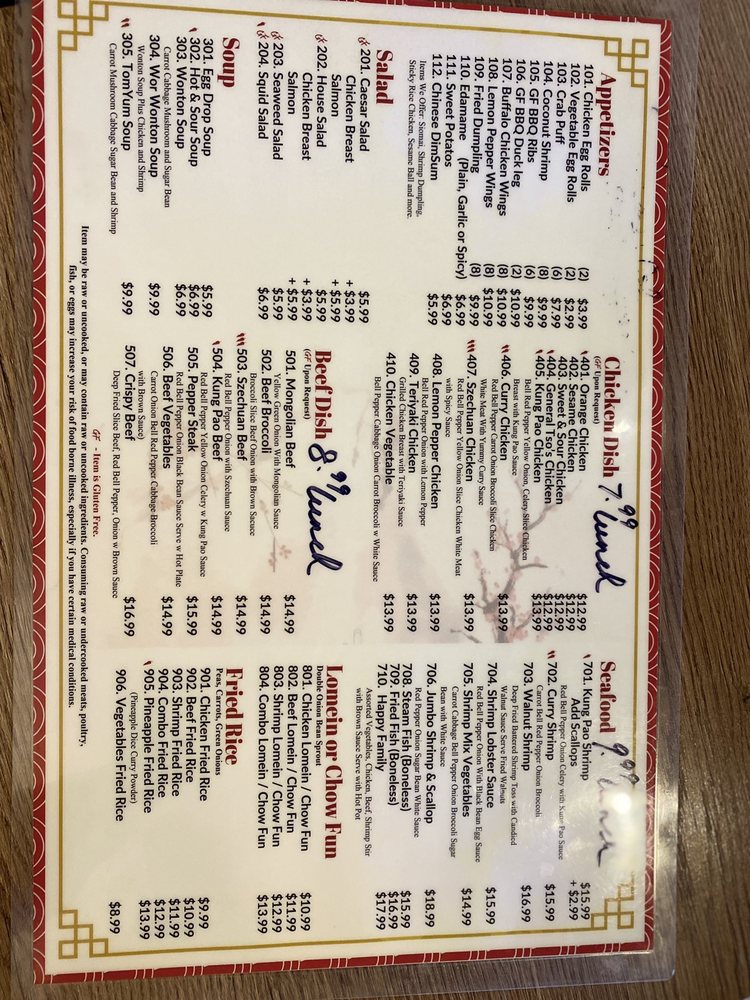 Appetizers
101. Chicken Egg Rolls (2) $3.99
102. Vegetable Egg Rolls (2) $2.99
103. Crab Puff (6) $7.99
104. Coconut Shrimp (8) $9.99
105. GF BBQ Ribs (6) $9.99
106. GF BBQ Duck leg (2) $10.99
107. Buffalo Chicken Wings (8) $10.99
108. Lemon Pepper Wings (8) $10.99
109. Fried Dumpling (8) $9.99
110. Edamame (Plain, Garlic or Spicy) $6.99
111. Sweet Potatos $6.99
112. Chinese DimSum $5.99
Items We Offer: Siomai, Shrimp Dumpling,
Sticky Rice Chicken, Sesame Ball and more.
Salad
GF 201. Caesar Salad $5.99
Chicken Breast + $3.99
Salmon + $5.99
GF 202. House Salad $5.99
Chicken Breast + $3.99
Salmon + $5.99
GF 203. Seaweed Salad $5.99
GF 204. Squid Salad $6.99
Soup
301. Egg Drop Soup $5.99
302. Hot & Sour Soup $6.99
303. Wonton Soup $6.99
Carrot Cabbage Mushroom and Sugar Bean
304. Wor Wonton Soup $9.99
Wonton Soup Plus Chicken and Shrimp
305. TomYum Soup $9.99
Carrot Mushroom Cabbage Sugar Bean and Shrimp
Chicken Dish 7.99 Lunch
(GF Upon Request)
401. Orange Chicken $12.99
402. Sesame Chicken $12.99
403. Sweet & Sour Chicken $12.99
404. General Tso's Chicken $12.99
405. Kung Pao Chicken $13.99
Bell Red Pepper Yellow Onion, Celery Slice Chicken
Breast with Kung Pao Sauce
406. Curry Chicken $13.99
Red Bell Pepper Carrot Onion Broccoli Slice Chicken
White Meat With Yummy Curry Sauce
407. Szechuan Chicken $13.99
Red Bell Pepper Yellow Onion Slice Chicken White Meat
with Spicy Sauce
408. Lemon Pepper Chicken $13.99
Bell Red Pepper Onion with Lemon Pepper
409. Teriyaki Chicken $13.99
Grilled Chicken Breast with Teriyaki Sauce
410. Chicken Vegetable $13.99
Bell Pepper Cabbage Onion Carrot Broccoli w White Sauce
Beef Dish 8.99 Lunch
(GF Upon Request)
501. Mongolian Beef $14.99
Yellow Green Onion With Mongolian Sauce
502. Beef Brocoli $14.99
Broccoli Slice Beef Onion with Brown Sacuce
503. Szechuan Beef $14.99
Red Bell Pepper Onion with Szechuan Sauce
504. Kung Pao Beef $14.99
Red Bell Pepper Yellow Onion Celery w Kung Pao Sauce
505. Pepper Steak $15.99
Red Bell Pepper Onion Black Bean Sauce Serve w Hot Plate
506. Beef Vegetables $14.99
Carrot Onion Bell Red Pepper Cabbage Broccoli
with Brown Sauce)
507. Crispy Beef $16.99
Deep Fried Slice Beef, Red Bell Pepper, Onion w Brown Sauce
Seafood 9.99 Lunch
701. Kung Pao Shrimp $15.99
Add Scallops + $2.99
Red Bell Pepper Onion Celery with Kung Pao Sauce
702. Curry Shrimp $15.99
Carrot Bell Red Pepper Onion Broccoli
703. Walnut Shrimp $16.99
Deep Fried Battered Shrimp Toss with Candied
Walnut Sauce Serve Fried Walnuts
704. Shrimp Lobster Sauce $15.99
Red Bell Pepper Onion With Black Bean Egg Sauce
705. Shrimp Mix Vegetables $14.99
Carrot Cabbage Bell Pepper Onion Broccoli Sugar
Bean with White Sauce
706. Jumbo Shrimp & Scallop $18.99
Red Pepper Onion Sugar Bean White Sauce
708. Steam Fish (Boneless) $15.99
709. Fried Fish (Boneless) $16.99
710. Happy Family $17.99
Assorted Vegetables, Chicken, Beef, Shrimp Stir
with Brown Sauce Serve with Hot Pot
Lomein or Chow Fun
Double Onion Bean Sprout
801. Chicken Lomein / Chow Fun $10.99
802. Beef Lomein / Chow Fun $11.99
803. Shrimp Lomein / Chow Fun $12.99
804. Combo Lomein / Chow Fun $13.99
Fried Rice
Peas, Carrots, Green Onions
901. Chicken Fried Rice $9.99
902. Beef Fried Rice $10.99
903. Shrimp Fried Rice $11.99
904. Combo Fried Rice $12.99
905. Pineapple Fried Rice $13.99
(Pineapple Dice Curry Powder)
906. Vegetables Fried Rice $8.99
GF - Item is Gluten Free.
Item may be raw or uncooked, or may contain raw or uncooked ingredients. Consuming raw or undercooked meats, poultry,
fish, or eggs may increase your risk of food borne illness, especially if you have certain medical conditions.